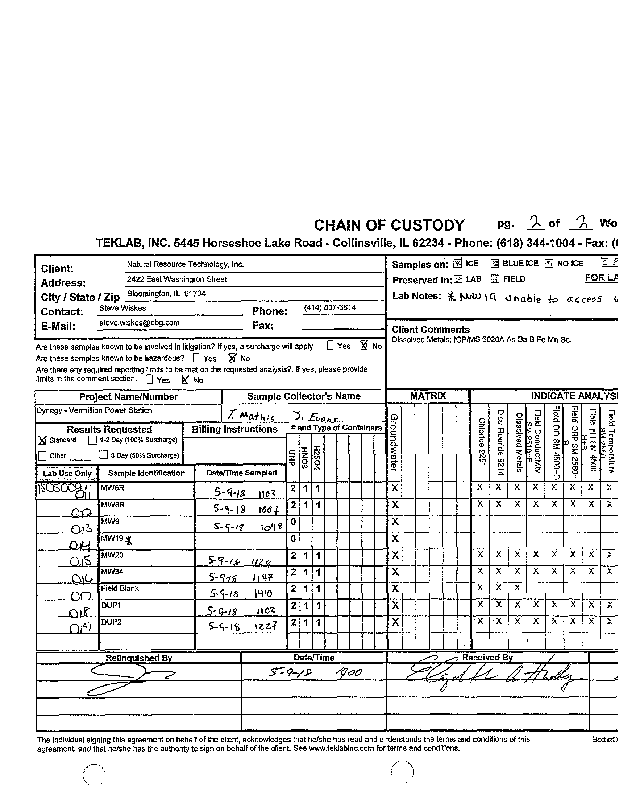 CHAIN OF CUSTODY pg. 2 of 2 Wo
TEKLAB, INC. 5445 Horseshoe Lake Road - Collinsville, IL 62234 - Phone: (618) 344-1004 - Fax: (
Client: Natural Resource Technology, Inc.
Address: 2422 East Washington Street
City / State / Zip Bloomington, IL 61704
Contact: Steve Wiskes Phone: (414)
E-Mail: Fax:
Samples on: ICE BLUE ICE NO ICE
Preserved in: LAB FIELD FOR LA
Lab Notes: * MW19 unable to access
Client Comments
Dissolved Metals; ICP/MS 6020A As Ba B Fe Mn Se
Are these samples known to be involved in litigation? If yes, a surcharge will apply Yes X No
Are these samples known to be hazardous? Yes X No
Are there any required reporting limits to be met on the requested analysis?. If yes, please provide
limits in the comment section. Yes X No
Project Name/Number Sample Collector's Name MATRIX INDICATE ANALYSI
Dynegy - Vermilion Power Station T. Mathis
Results Requested Billing Instructions # and Type of Containers
X Standard 1-2 Day (100% Surcharge)
Other 3 Day (50% Surcharge)
UNP HNO3 H2SO4 Groundwater Dissolved Metals
Lab Use Only Sample Identification Date/Time Sampled
011 5-9-18 1103 2 1 1 X X X X X X X X X
5-9-18 2 1 1 X X X X X X X X X
013 MW9 5-9-18 1048 0 X
014 MW19 * 0 X
015 MW20 5-9-18 2 1 1 X X X X X X X X X
016 MW34 5-9-18 1147 2 1 1 X X X X X X X X X
Field Blank 5-9-18 1410 2 1 1 X X X X
018 DUP1 5-9-18 1103 2 1 1 X X X X X X X X X
019 DUP2 5-9-18 1227 2 1 1 X X X X X X X X X
Relinquished By Date/Time Received By
5-9-18 1900
The individual signing this agreement on behalf of the client, acknowledges that he/she has read and understands the terms and conditions of this
agreement, and that he/she has the authority to sign on behalf of the client. See www.teklabinc.com for terms and conditions.